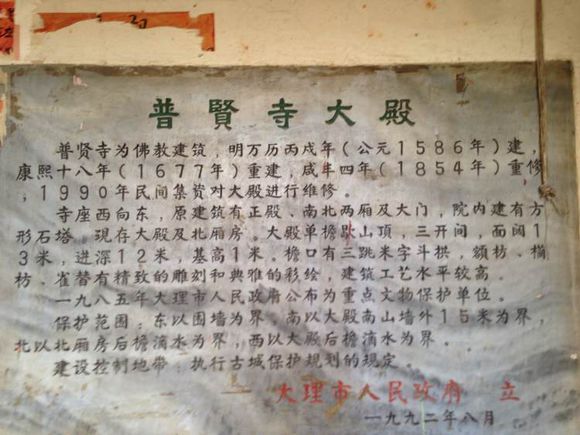 普賢寺大殿
普贤寺为佛教建筑，明万历丙戌年（公元1586年）建，
康熙十八年（1677年）重建，咸丰四年（1854年）重修
，1990年民间集资对大殿进行维修。
寺座西向东，原建筑有正殿、南北两厢及大门，院内建有方
形石塔。现存大殿及北厢房。大殿单檐歇山顶，三开间，面阔1
3米，进深12米，基高1米。檐口有三跳米字斗拱，额枋、橫
枋、雀替有精致的雕刻和典雅的彩绘，建筑工艺水平较高。
一九八五年大理市人民政府公布为重点文物保护单位。
保护范围：东以围墙为界，南以大殿南山墙外15米为界，
北以北厢房后檐滴水为界，西以大殿后檐滴水为界。
建设控制地带：执行古城保护规划的规定
大理市人民政府 立
一九九二年八月